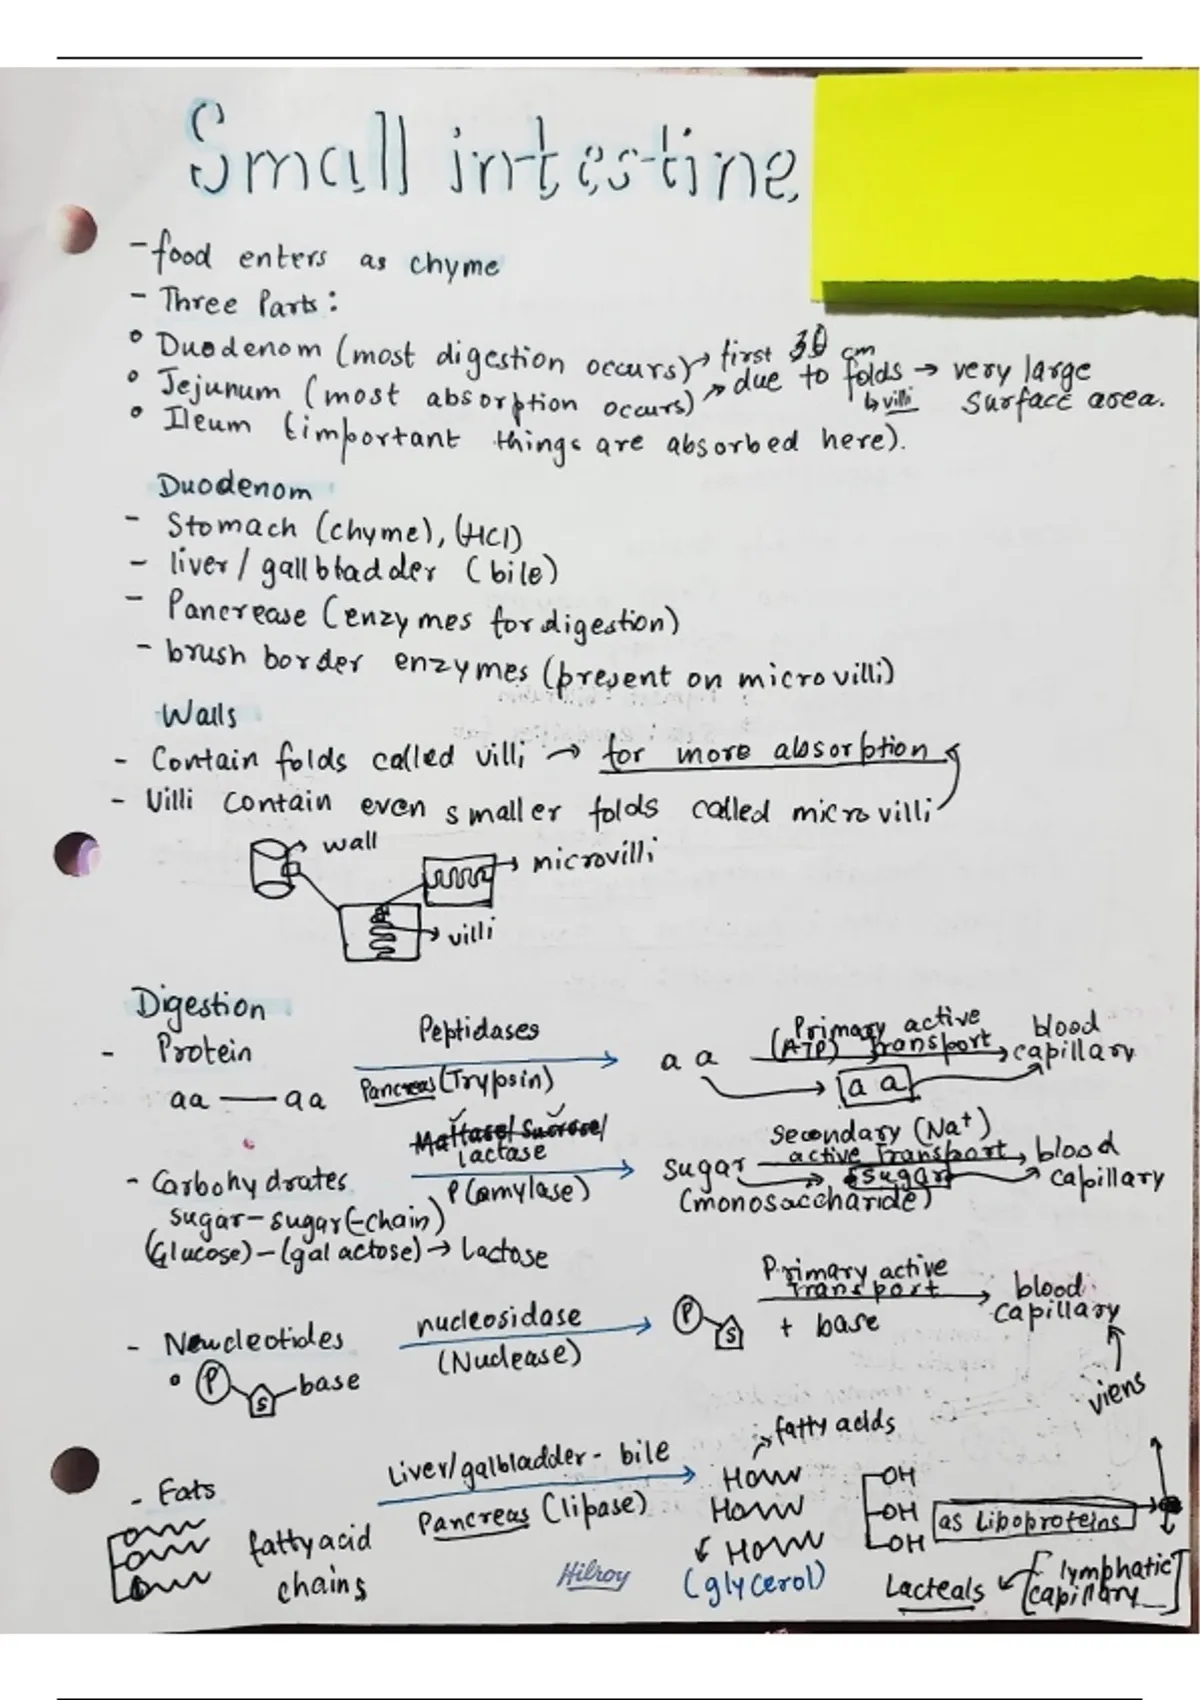 Small intestine
- food enters as chyme
- Three Parts:
° Duodenom (most digestion occurs) → first 30 cm
° Jejunum (most absorption occurs) → due to folds → very large surface area.
↳ villi
° Ileum (important things are absorbed here).
Duodenom
- Stomach (chyme), (HCl)
- liver / gallbladder (bile)
- Pancrease (enzymes for digestion)
- brush border enzymes (present on microvilli)
Walls
- Contain folds called villi → for more absorption
- Villi contain even smaller folds called microvilli
wall
microvilli
villi
Digestion
- Protein
aa — aa
Peptidases
Pancreas (Trypsin)
a a
Primary active
(ATP) transport
a a
blood
capillary
Maltase/Sucrose/
lactase
- Carbohydrates
P(amylase)
sugar-sugar(-chain)
(Glucose)-(galactose) → Lactose
sugar
(monosaccharide)
secondary (Na⁺)
active transport
sugar
blood
capillary
- Neucleotides
° P S base
nucleosidase
(Nuclease)
P S
Primary active
transport
+ base
blood
capillary
viens
- Fats
fattyacid
chains
Liver/galbladder - bile
Pancreas (lipase)
fatty acids
HO
HO
HO
(glycerol)
OH
OH
OH
as Lipoproteins
Lacteals
[lymphatic
capillary]
Hilroy